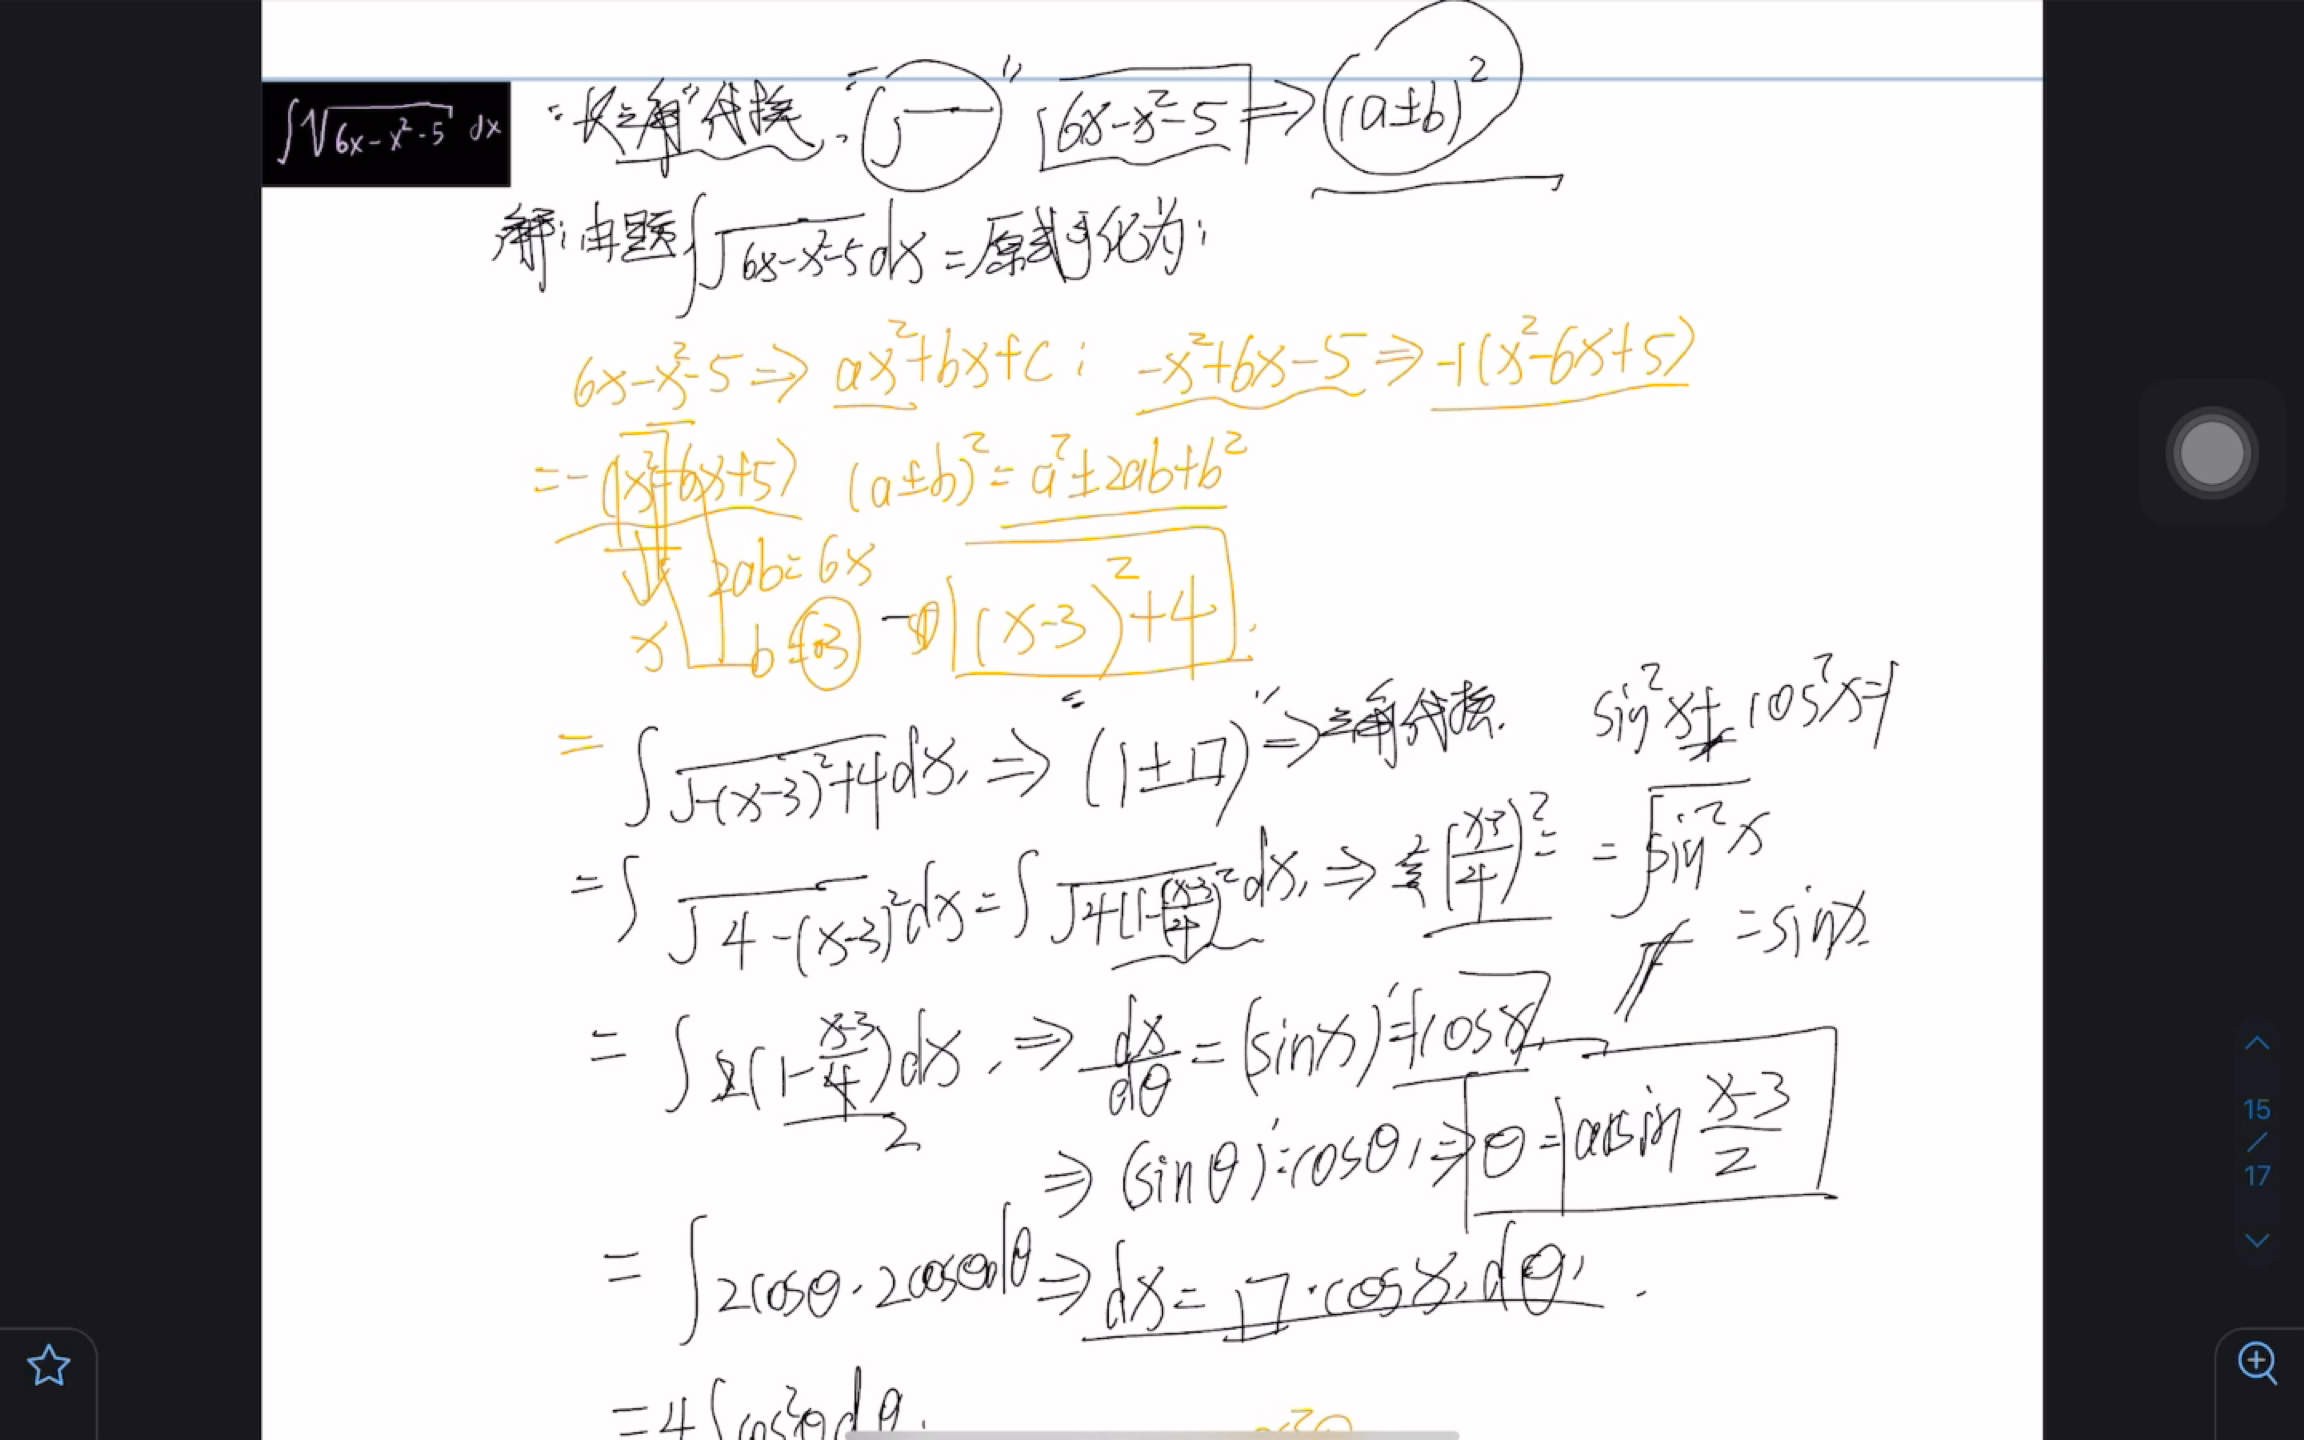 ∫√6x-x²-5 dx
"长三角"代换. "√" √6x-x²-5 ⇒ (a±b)²
解: 由题 ∫√6x-x²-5 dx = 原式可化为:
6x-x²-5 ⇒ ax²+bx+c ; -x²+6x-5 ⇒ -1(x²-6x+5)
=-(x²-6x+5) (a±b)²=a²±2ab+b²
2ab=6x
x b=3 -(x-3)²+4
= ∫√-(x-3)²+4 dx, ⇒ "(1±□)" ⇒ 三角代换. sin²x+cos²x=1
= ∫√4-(x-3)² dx = ∫√4(1-(x-3/4)² dx, ⇒ (x-3/4)² = = √sin²x
= sinx.
= ∫2(1-x-3/4)dx, ⇒ dx/dθ = (sinx)' = cosx
2
⇒ (sinθ)'=cosθ, ⇒ θ = arcsin x-3/2
= ∫2cosθ·2cosθdθ ⇒ dx = □·cosx.dθ,
=4∫cos²θdθ.
15
/
17